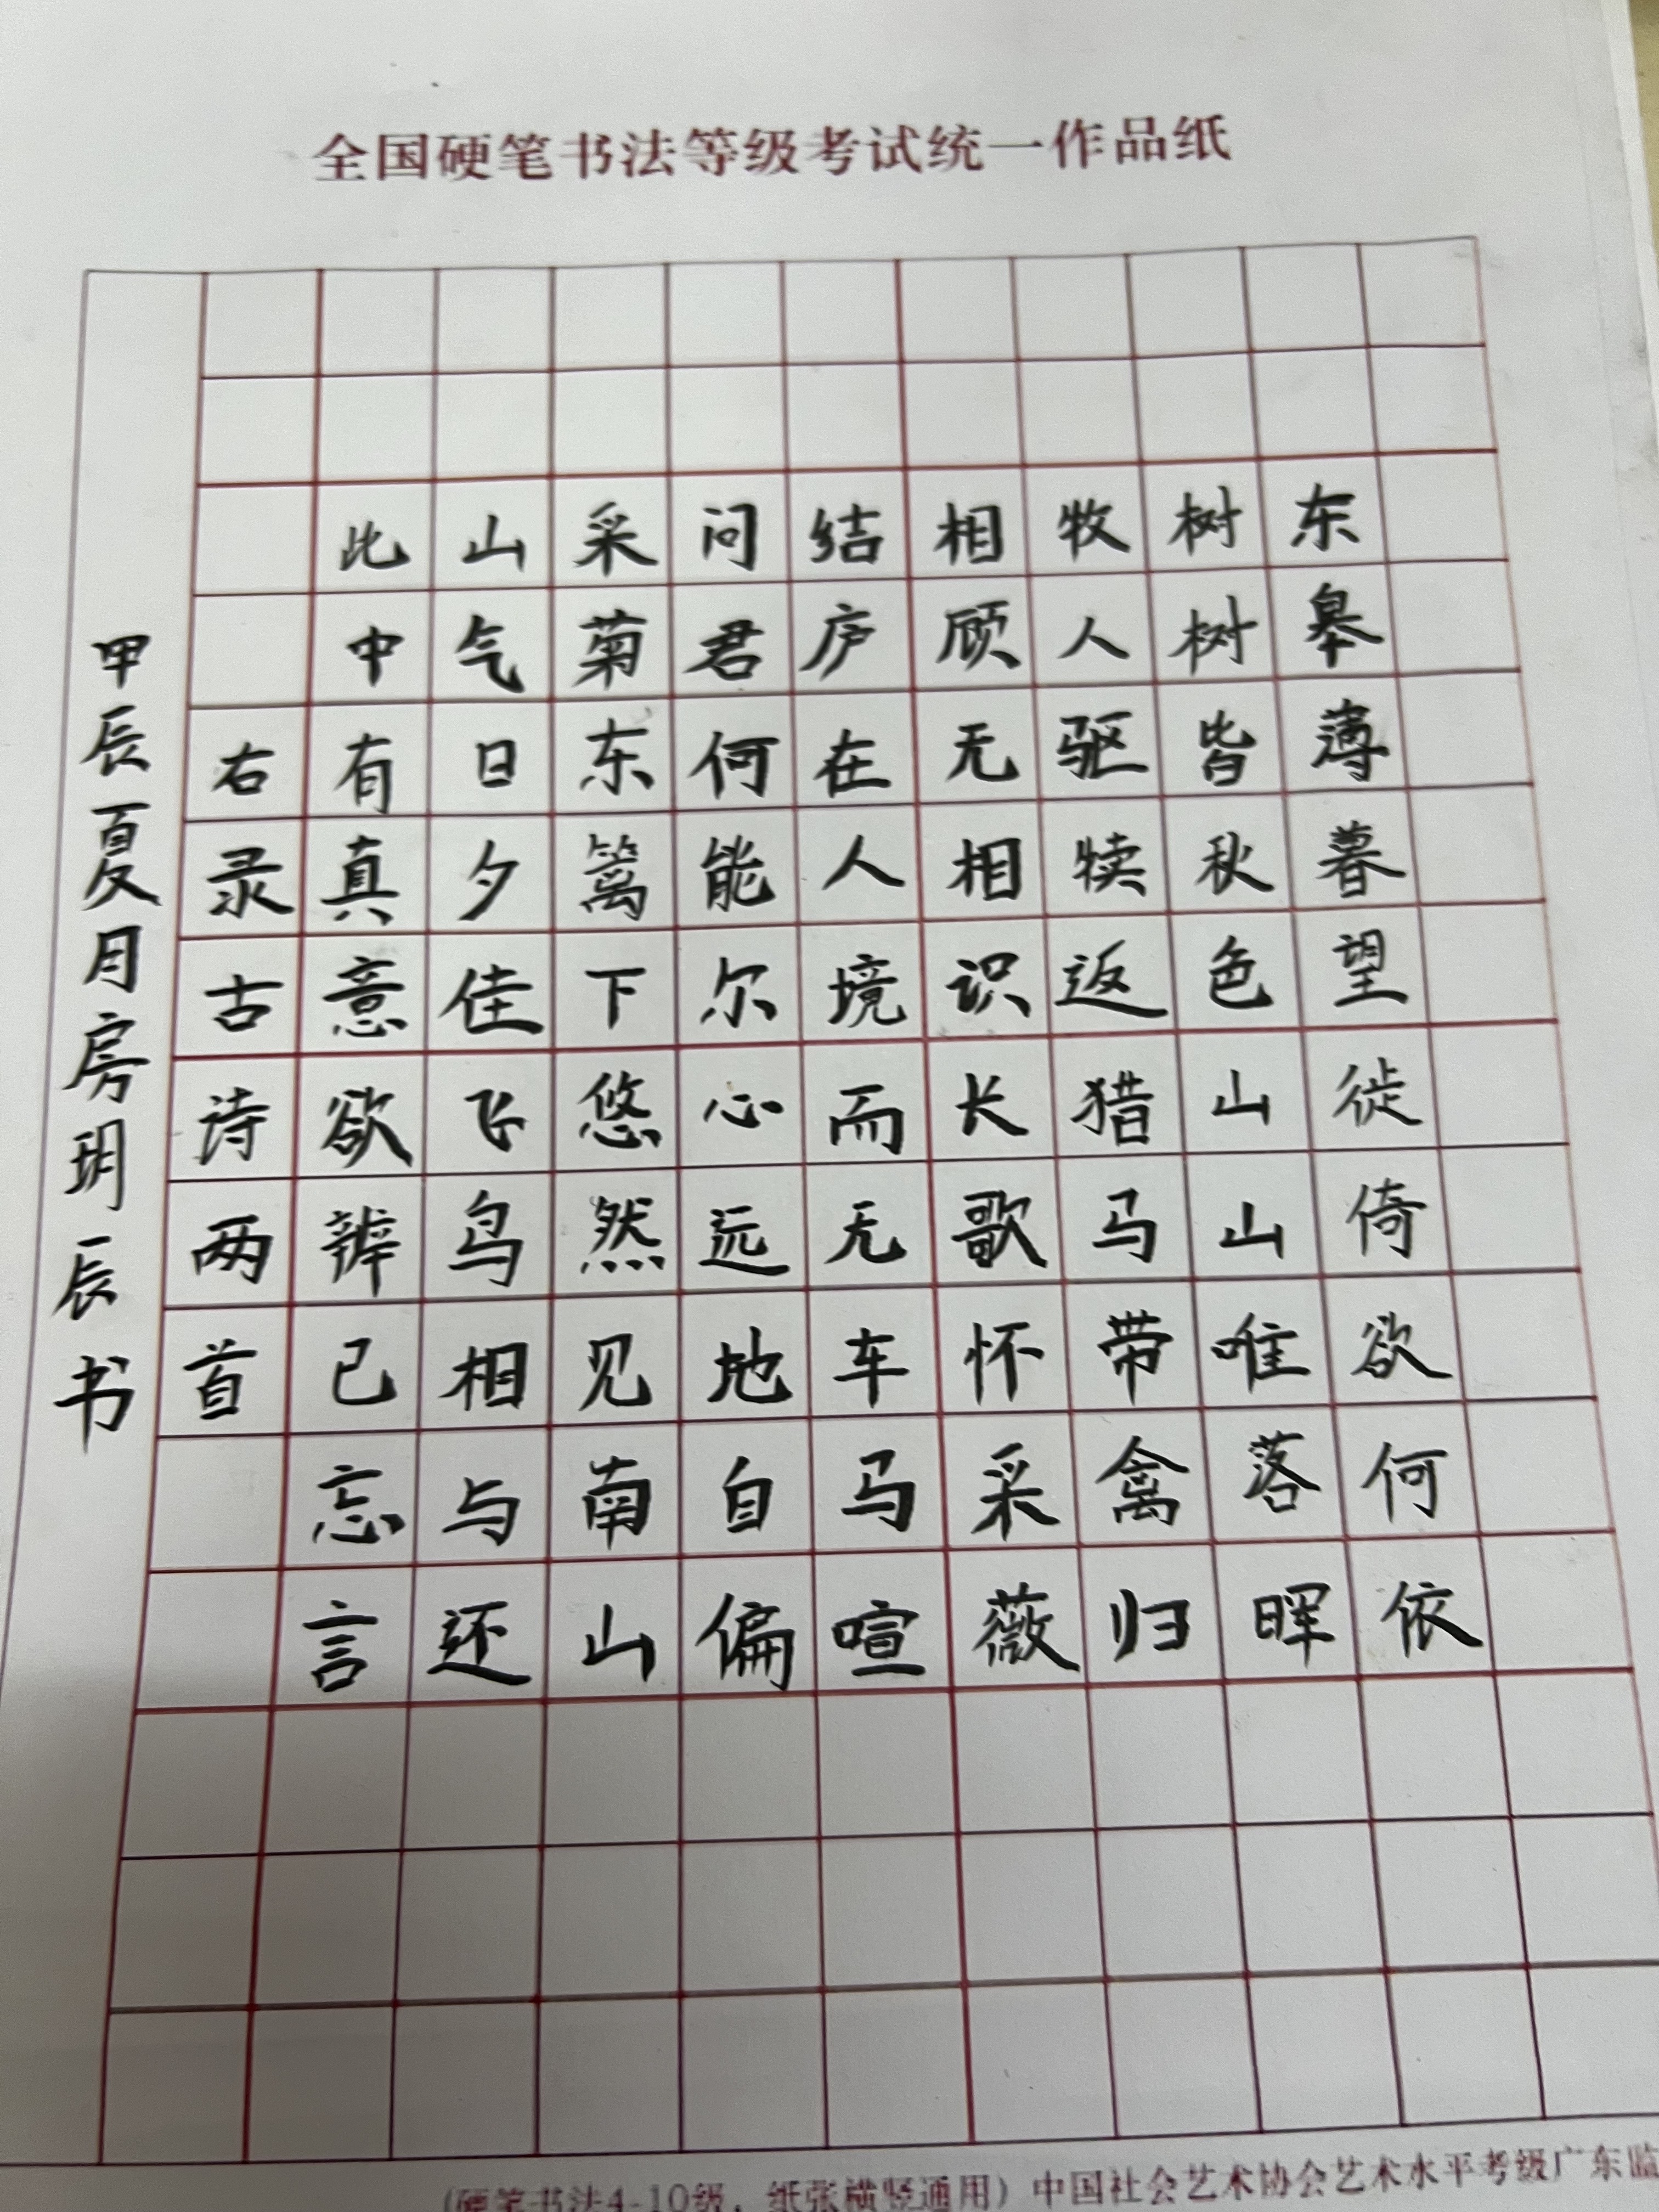 全国硬笔书法等级考试统一作品纸
东皋薄暮望徙倚欲何依
树树皆秋色山山唯落晖
牧人驱犊返猎马带禽归
相顾无相识长歌怀采薇
结庐在人境而无车马喧
问君何能尔心远地自偏
采菊东篱下悠然见南山
山气日夕佳飞鸟相与还
此中有真意欲辨已忘言
右录古诗两首
甲辰夏月房玥辰书
(硬笔书法4-10级，纸张横竖通用) 中国社会艺术协会艺术水平考级广东监